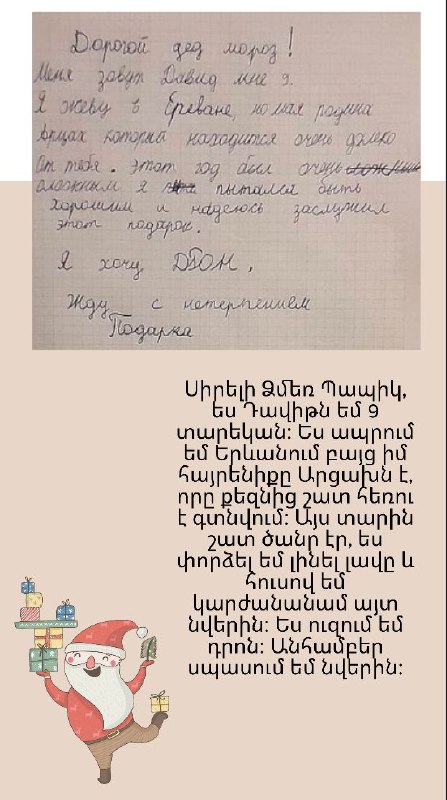 Дорогой дед мороз!
Меня зовут Давид мне 9.
Я жеву в Ереване, но моя родина
Арцах который находится очень далеко
От тебя. Этот год был очень
сложным я пытался быть
хорошим и надеюсь заслужил
этот подарок.
Я хочу ДРОН.
Жду с нетерпением
Подарка
Սիրելի Ձմեռ Պապիկ,
ես Դավիթն եմ 9
տարեկան։ Ես ապրում
եմ Երևանում բայց իմ
հայրենիքը Արցախն է,
որը քեզնից շատ հեռու
է գտնվում։ Այս տարին
շատ ծանր էր, ես
փորձել եմ լինել լավը և
հուսով եմ
կարժանանամ այտ
նվերին։ Ես ուզում եմ
դրոն։ Անհամբեր
սպասում եմ նվերին։